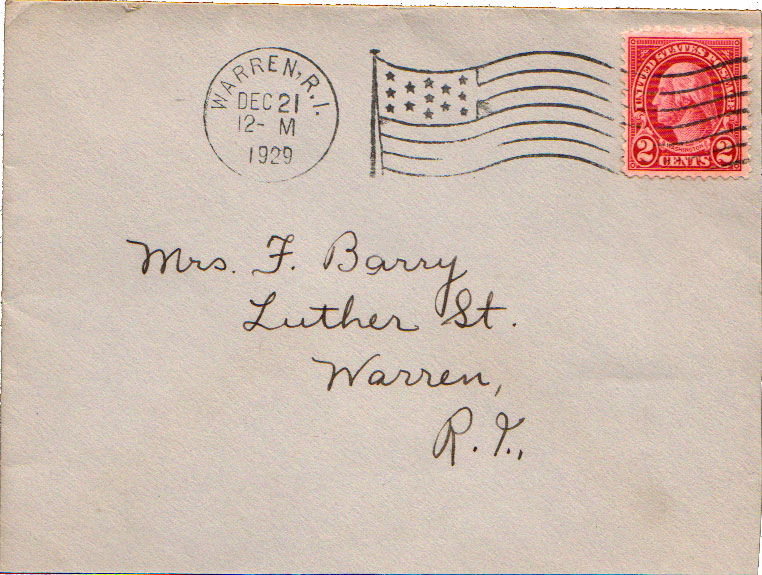 WARREN, R.I.
DEC 21
12- M
1929
UNITED STATES POSTAGE
WASHINGTON
2 CENTS 2
Mrs. F. Barry
Luther St.
Warren,
R. I.,